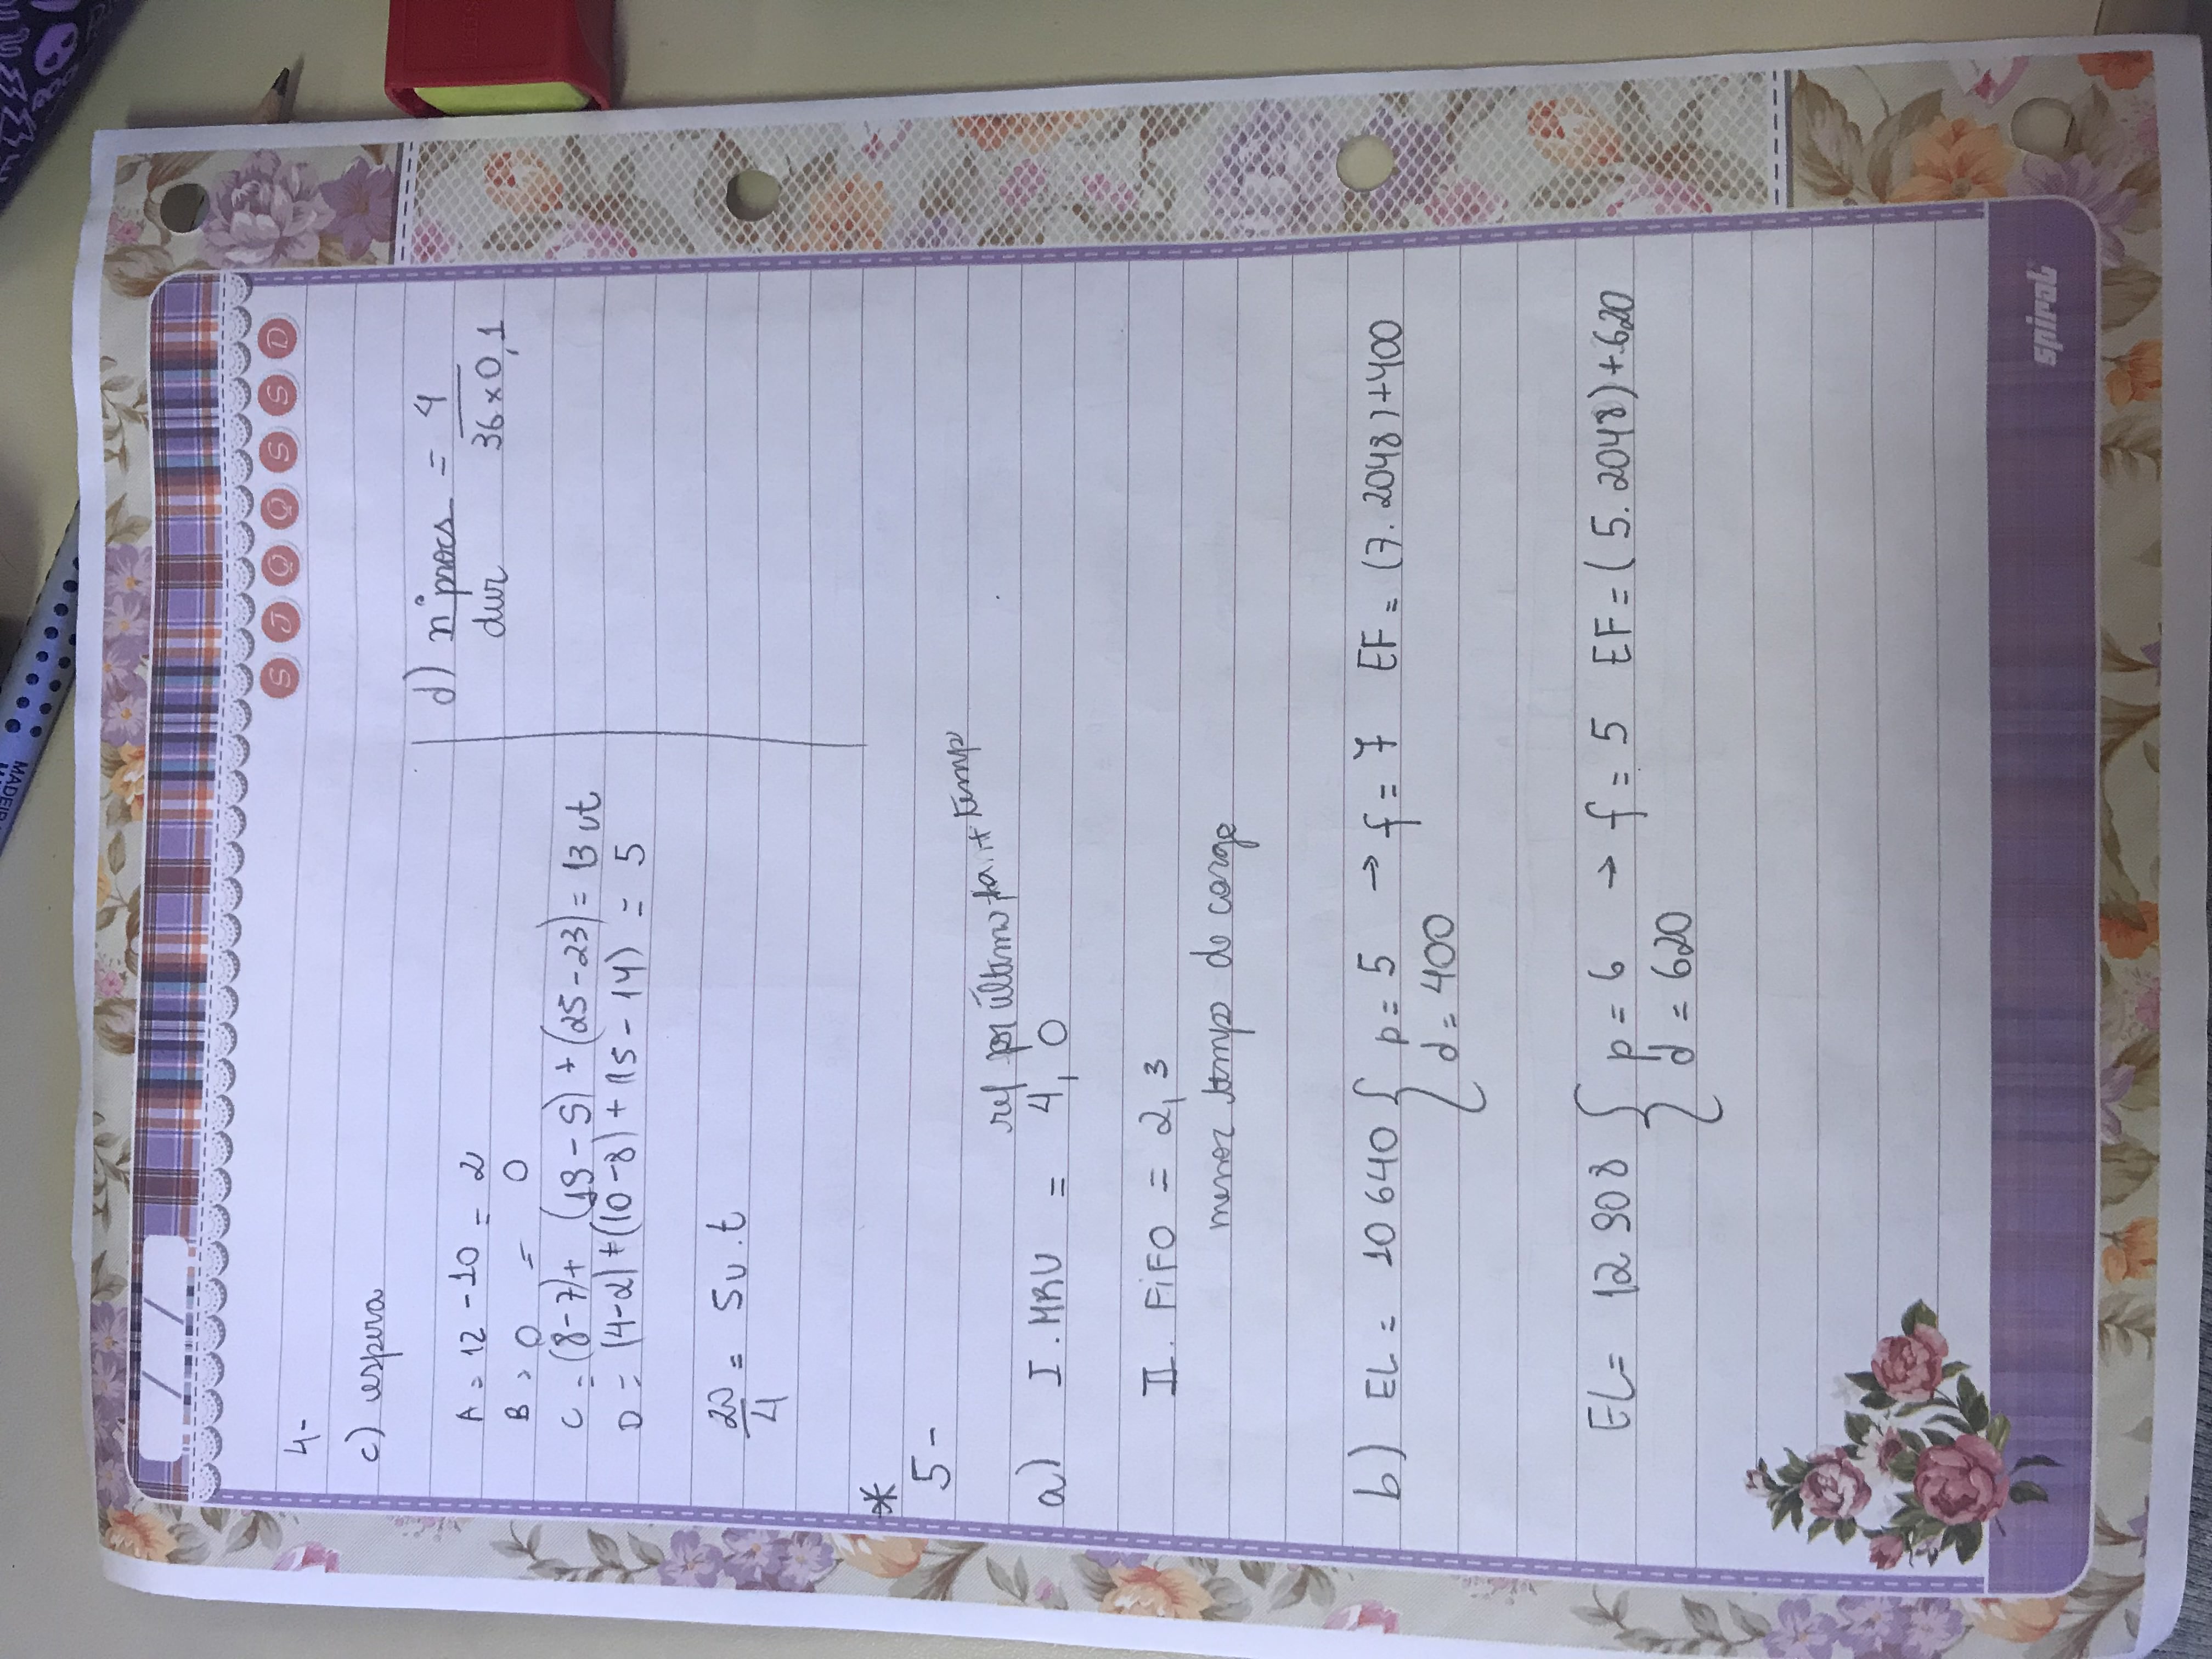 MADEIRA
/ /
S T Q Q S S D
4-
c) espera
A = 12 - 10 = 2
B = 0 = 0
C = (8-7)+ (19-9) + (25-23) = 13 ut
D = (4-2)+(10-8) + (15-14) = 5
20/4 = 5u.t
d) nº procs / dur = 4 / 36x0,1
*
5-
ref por último, + temp
a) I. MRU = 4, 0
II. FiFO = 2, 3
menor tempo de carga
b) EL = 10 640 { p = 5 → f = 7 EF = (7. 2048)+400
d = 400
EL = 12 908 { p = 6 → f = 5 EF = (5. 2048)+620
d = 620
spiral